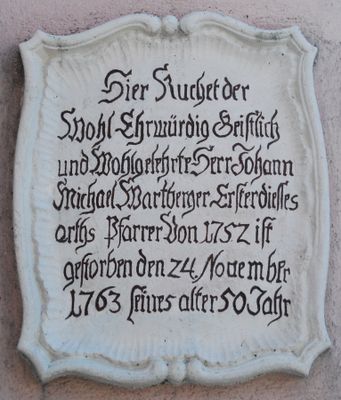 Hier Ruchet der
Wohl-Ehrwürdig Geistlich
und Wohlgelehrte Herr Johann
Michael Wartberger. Erster dieses
orths Pfarrer Von 1752 ist
gestorben den 24. November
1763 seines alter 50 Jahr